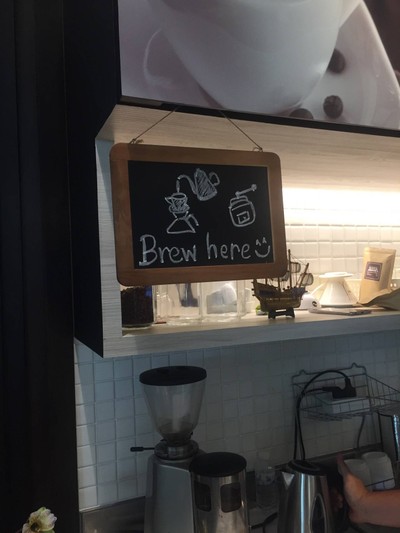 Brew here